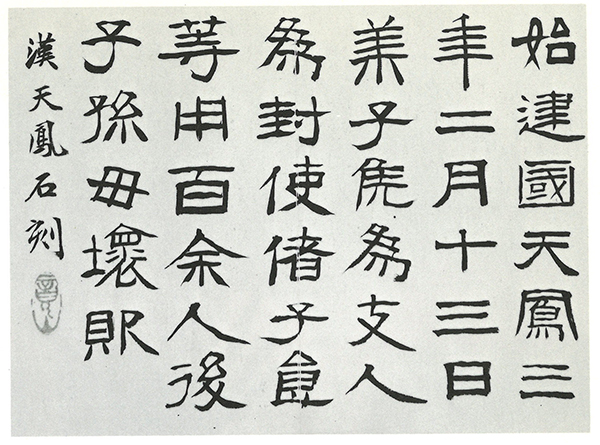 始建國天鳳三
年二月十三日
萊子侯為支人
為封使偖子食
等用百余人後
子孫毋壞敗
漢天鳳石刻